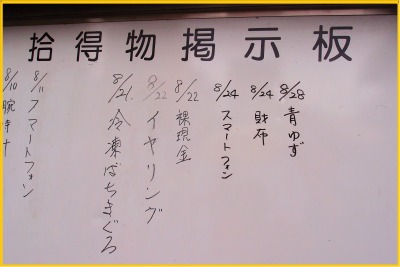 拾得物掲示板
8/28 青ゆず
8/24 財布
8/24 スマートフォン
8/22 裸現金
8/22 イヤリング
8/21 冷凍ばちまぐろ
8/11 スマートフォン
8/10 腕時計